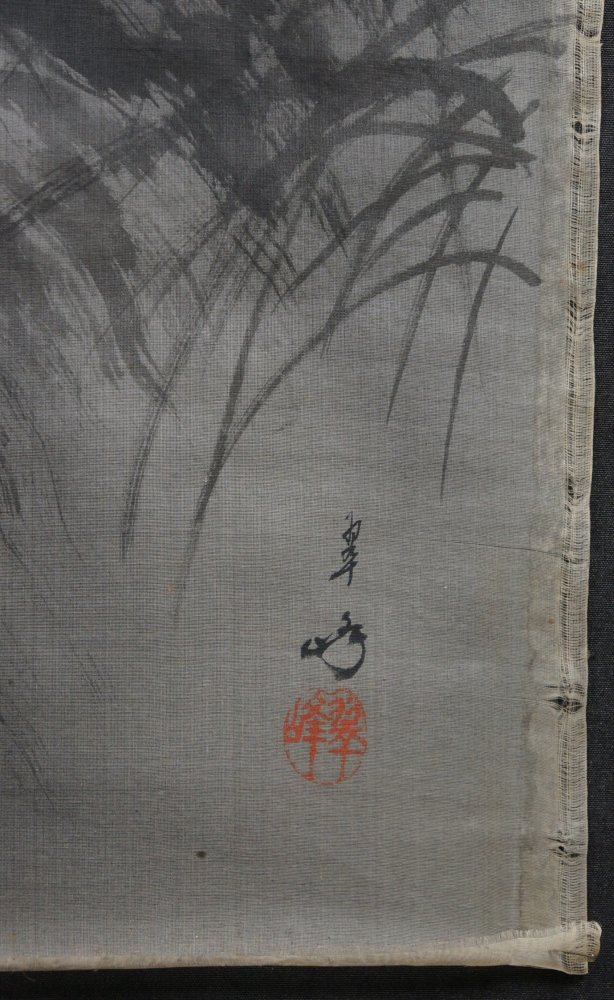 翠
峰
翠峰